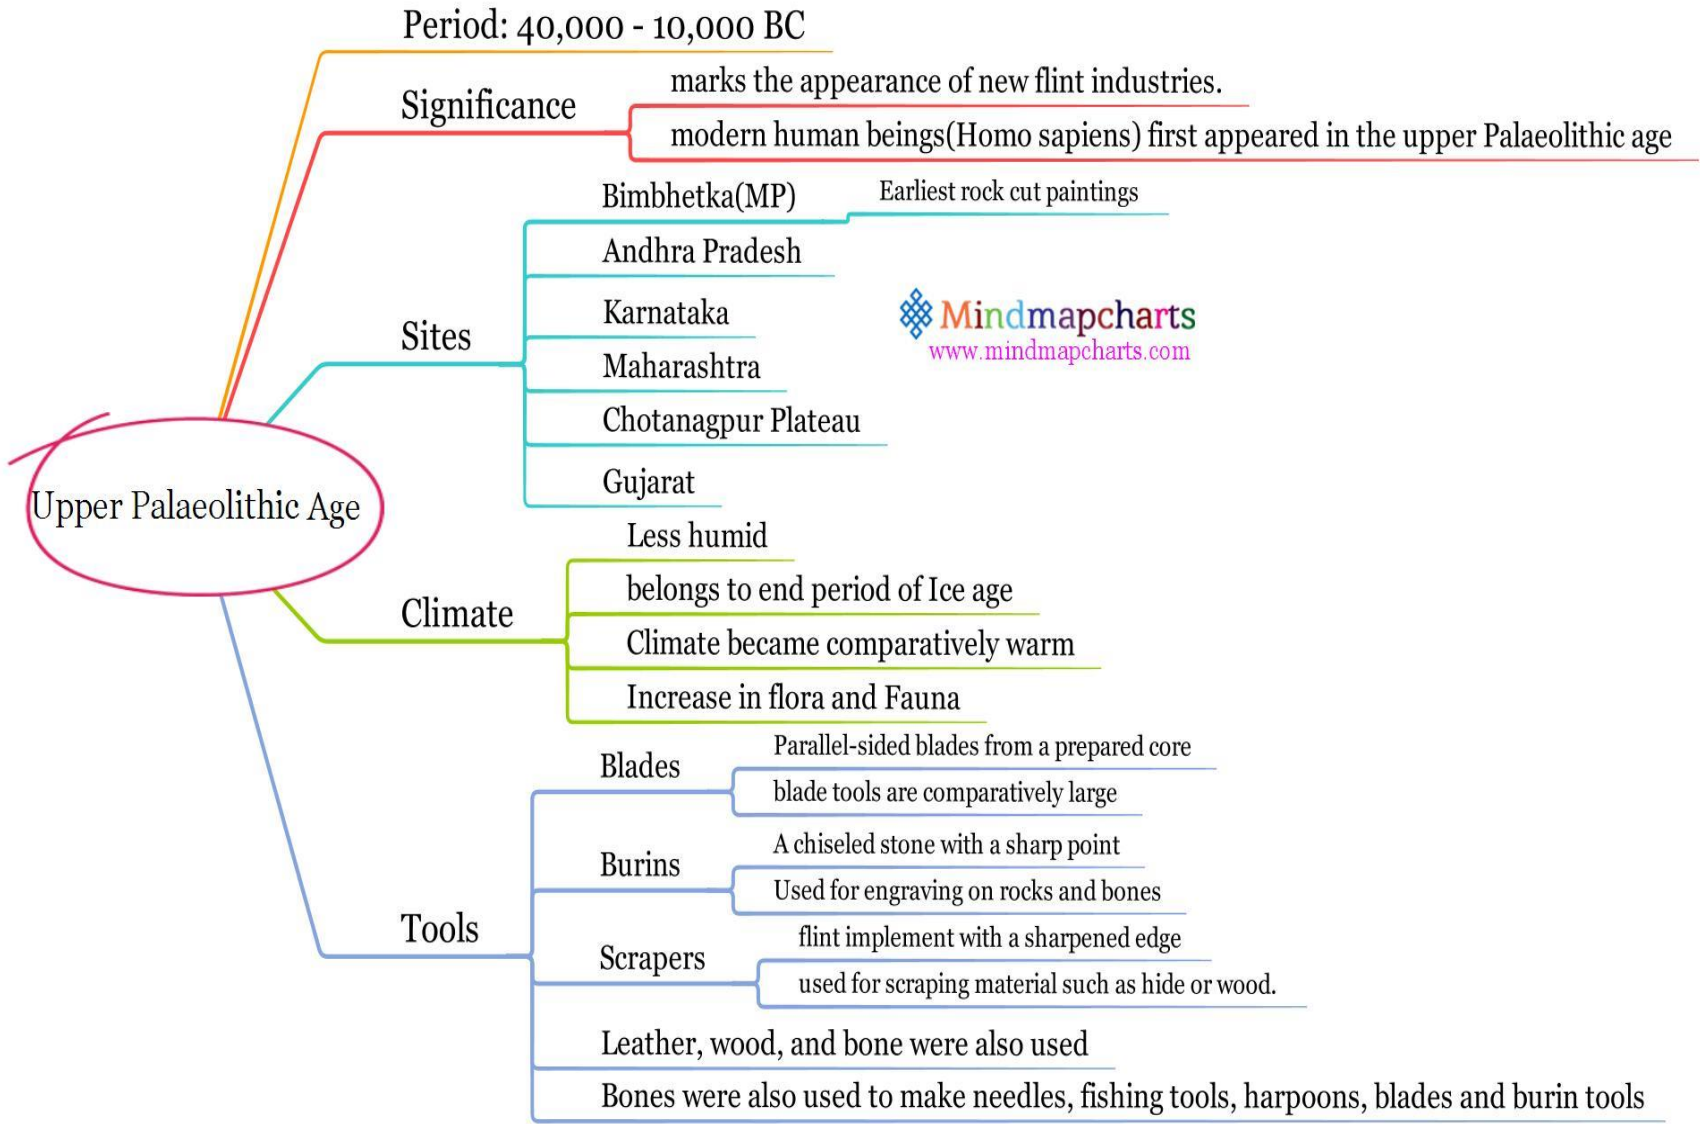 Period: 40,000 - 10,000 BC
Significance
marks the appearance of new flint industries.
modern human beings(Homo sapiens) first appeared in the upper Palaeolithic age
Sites
Bimbhetka(MP)
Earliest rock cut paintings
Andhra Pradesh
Karnataka
Maharashtra
Chotanagpur Plateau
Gujarat
Mindmapcharts
www.mindmapcharts.com
Upper Palaeolithic Age
Climate
Less humid
belongs to end period of Ice age
Climate became comparatively warm
Increase in flora and Fauna
Tools
Blades
Parallel-sided blades from a prepared core
blade tools are comparatively large
Burins
A chiseled stone with a sharp point
Used for engraving on rocks and bones
Scrapers
flint implement with a sharpened edge
used for scraping material such as hide or wood.
Leather, wood, and bone were also used
Bones were also used to make needles, fishing tools, harpoons, blades and burin tools